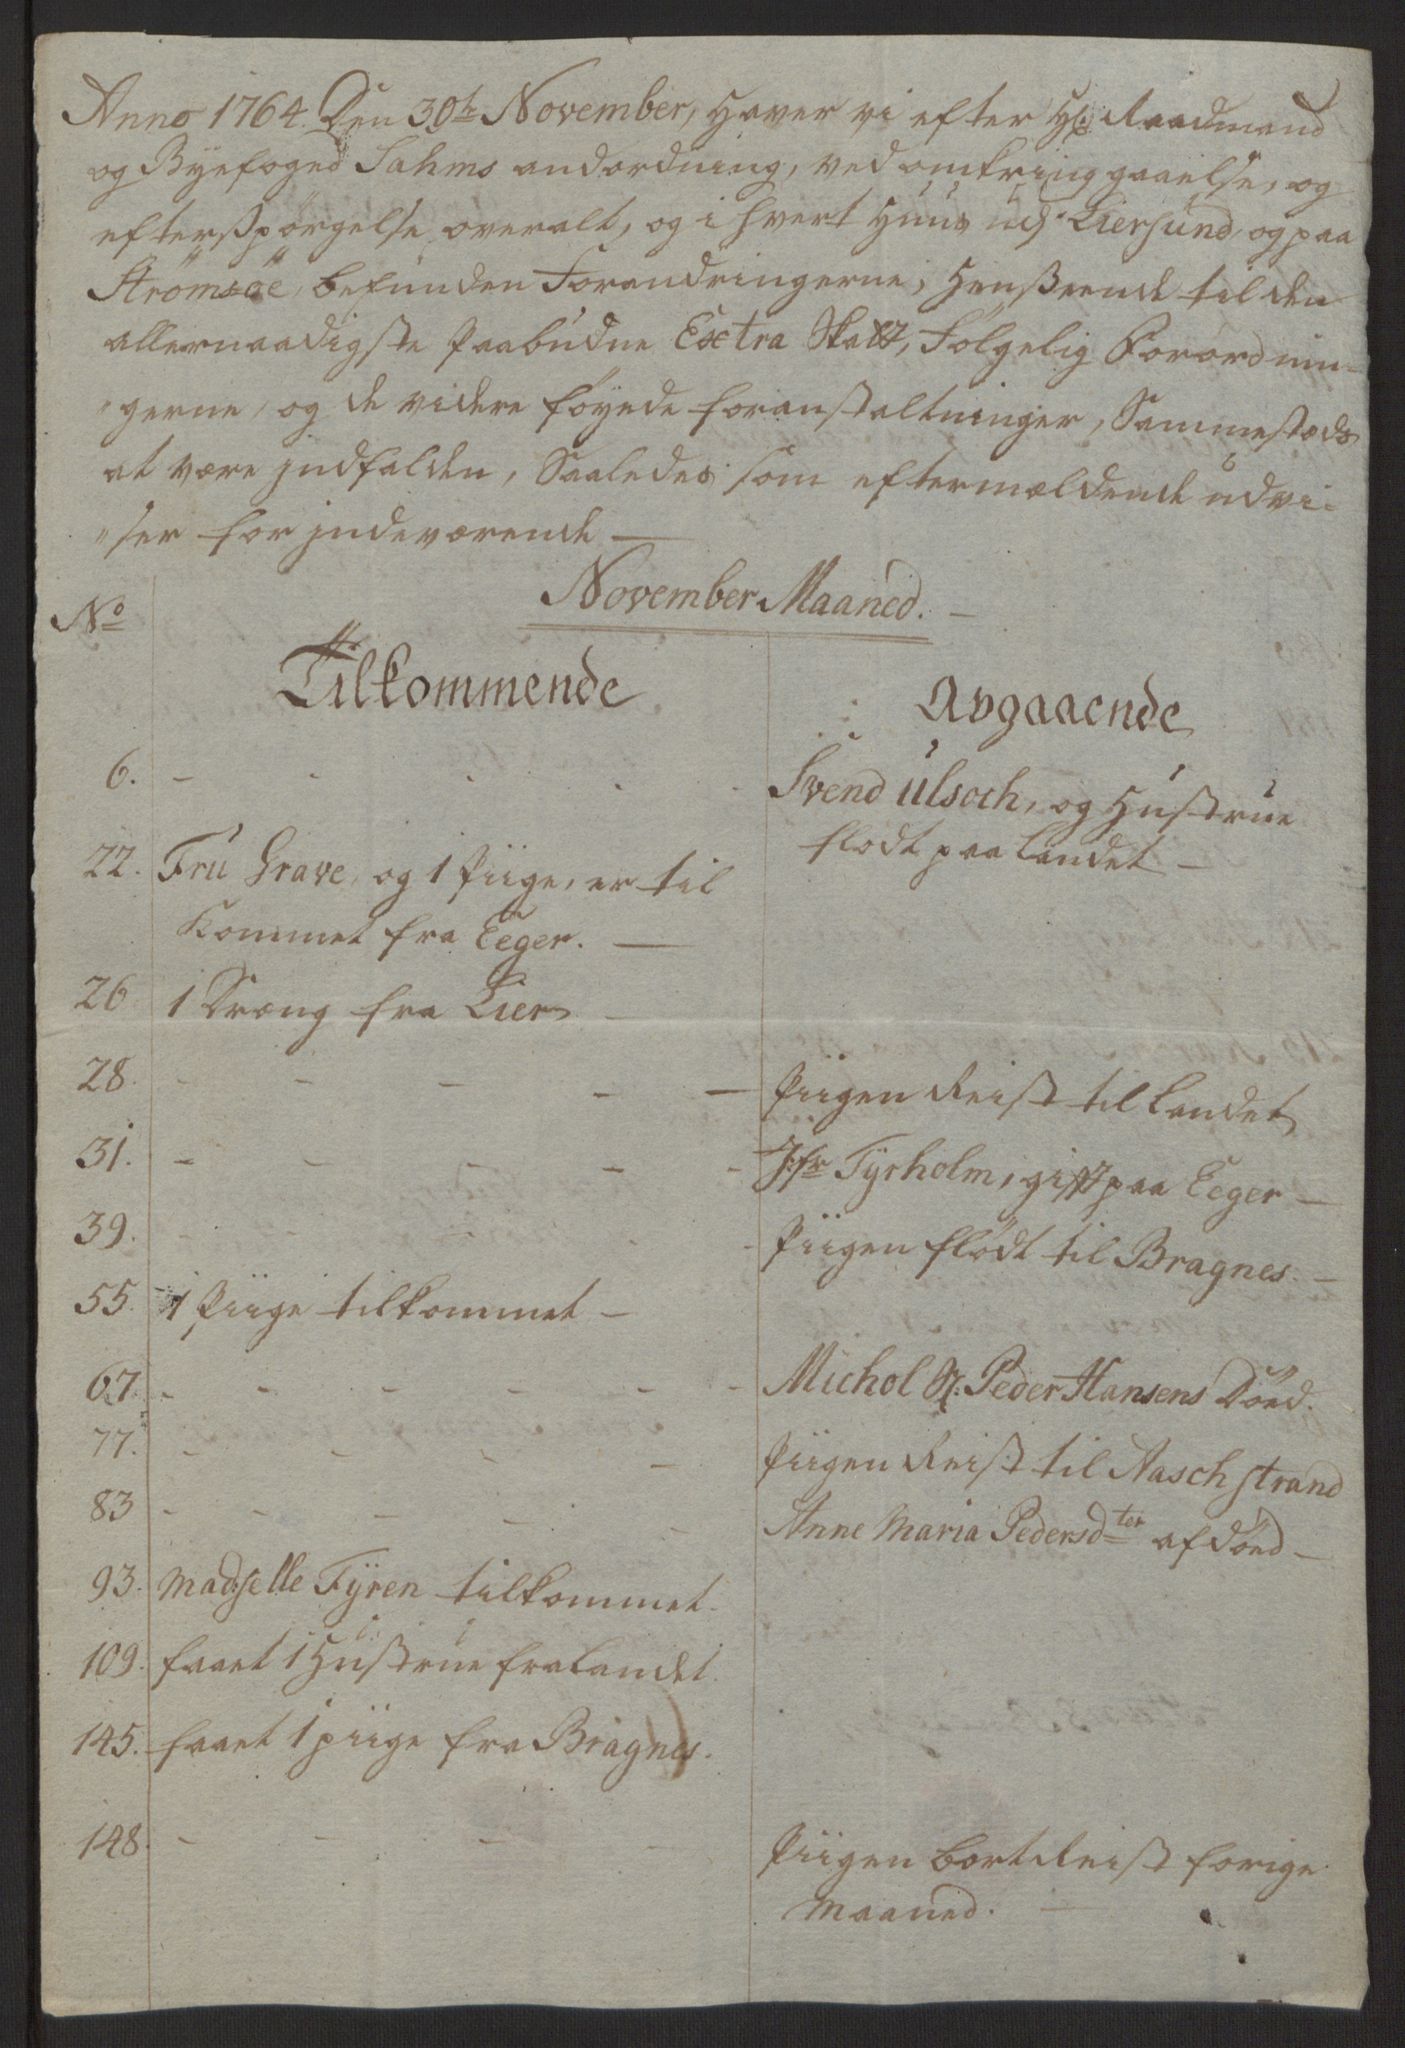 Anno 1764. Den 30te November, Haver vi efter Hr. Raadmand
og Byefoged Sahms andordning, ved omkringgaaelse, og
efterßpörgelse overalt, og i hvert Huus ud Liersund, og paa
Strömsöe, befunden Forandringerne, Henßeende til den
allernaadigste Paabudne Extra Skatt, Fölgelig Forordnin-
"gerne, og de videre föyede foranstaltninger, Sammestæds
at være jndfalden, Saaledes som eftermældende udvi-
"ser for jndeværende —
November Maaned. —
No
Tilkommende
Avgaaende
6. - - - - - Svend Ulsoch, og Hustrue
flødt paa Landet —
22. Fru Grave, og 1 Piige, er til
Kommet fra Eeger. —
26 1 Dræng fra Lier —
28. - - - - — Piigen Reist til Landet
31. - - - - - Jfr Tyrholm, gifft paa Eeger —
39. - - - - - Piigen flödt til Bragnes. —
55. 1 Piige tilkommet —
67. - - - - - Michol Sl. Peder Hansens Döed.
77. - - - — Piigen Reist til Aaschstrand
83 - - - - - Anne Maria Pedersdter afdöed —
93. Madselle Fyren tilkommet.
109. faaet 1 Hustrue fra Landet.
145. faaet 1 piige fra Bragnes.
148. - - - - Piigen bortReist forige
Maaned. —